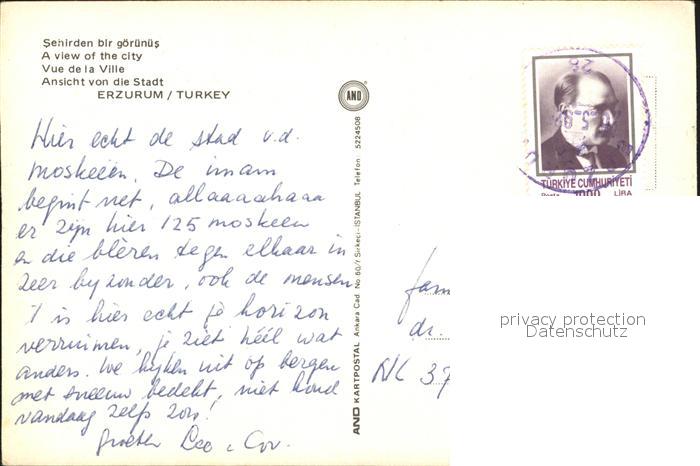 Şehirden bir görünüş
A view of the city
Vue de la Ville
Ansicht von die Stadt
ERZURUM / TURKEY
AND
Hier echt de stad v.d.
moskeeën. De imam
begint net, allaaaaahaaa
er zijn hier 125 moskeeen
en die blèren tegen elkaar in
zeer byzonder, ook de mensen
't is hier echt je horizon
verruimen, je ziet héél wat
anders. We kyken uit op bergen
met sneeuw bedekt, niet koud
vandaag zelfs zon!
groeten Leo + Cor.
AND KARTPOSTAL Ankara Cad. No. 60/1 Sirkeci-İSTANBUL Telefon: 5224508
TÜRKİYE CUMHURİYETİ
Posta 1000 LİRA
fam
dr.
NL 37
privacy protection
Datenschutz